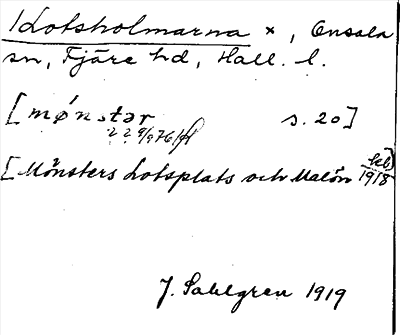 Lotsholmarna x, Onsala
sn, Fjäre hd, Hall. l.
[mǿnstər s. 20]
[Mönsters Lotsplats och Malön Skb) 1918
J. Sahlgren 1919